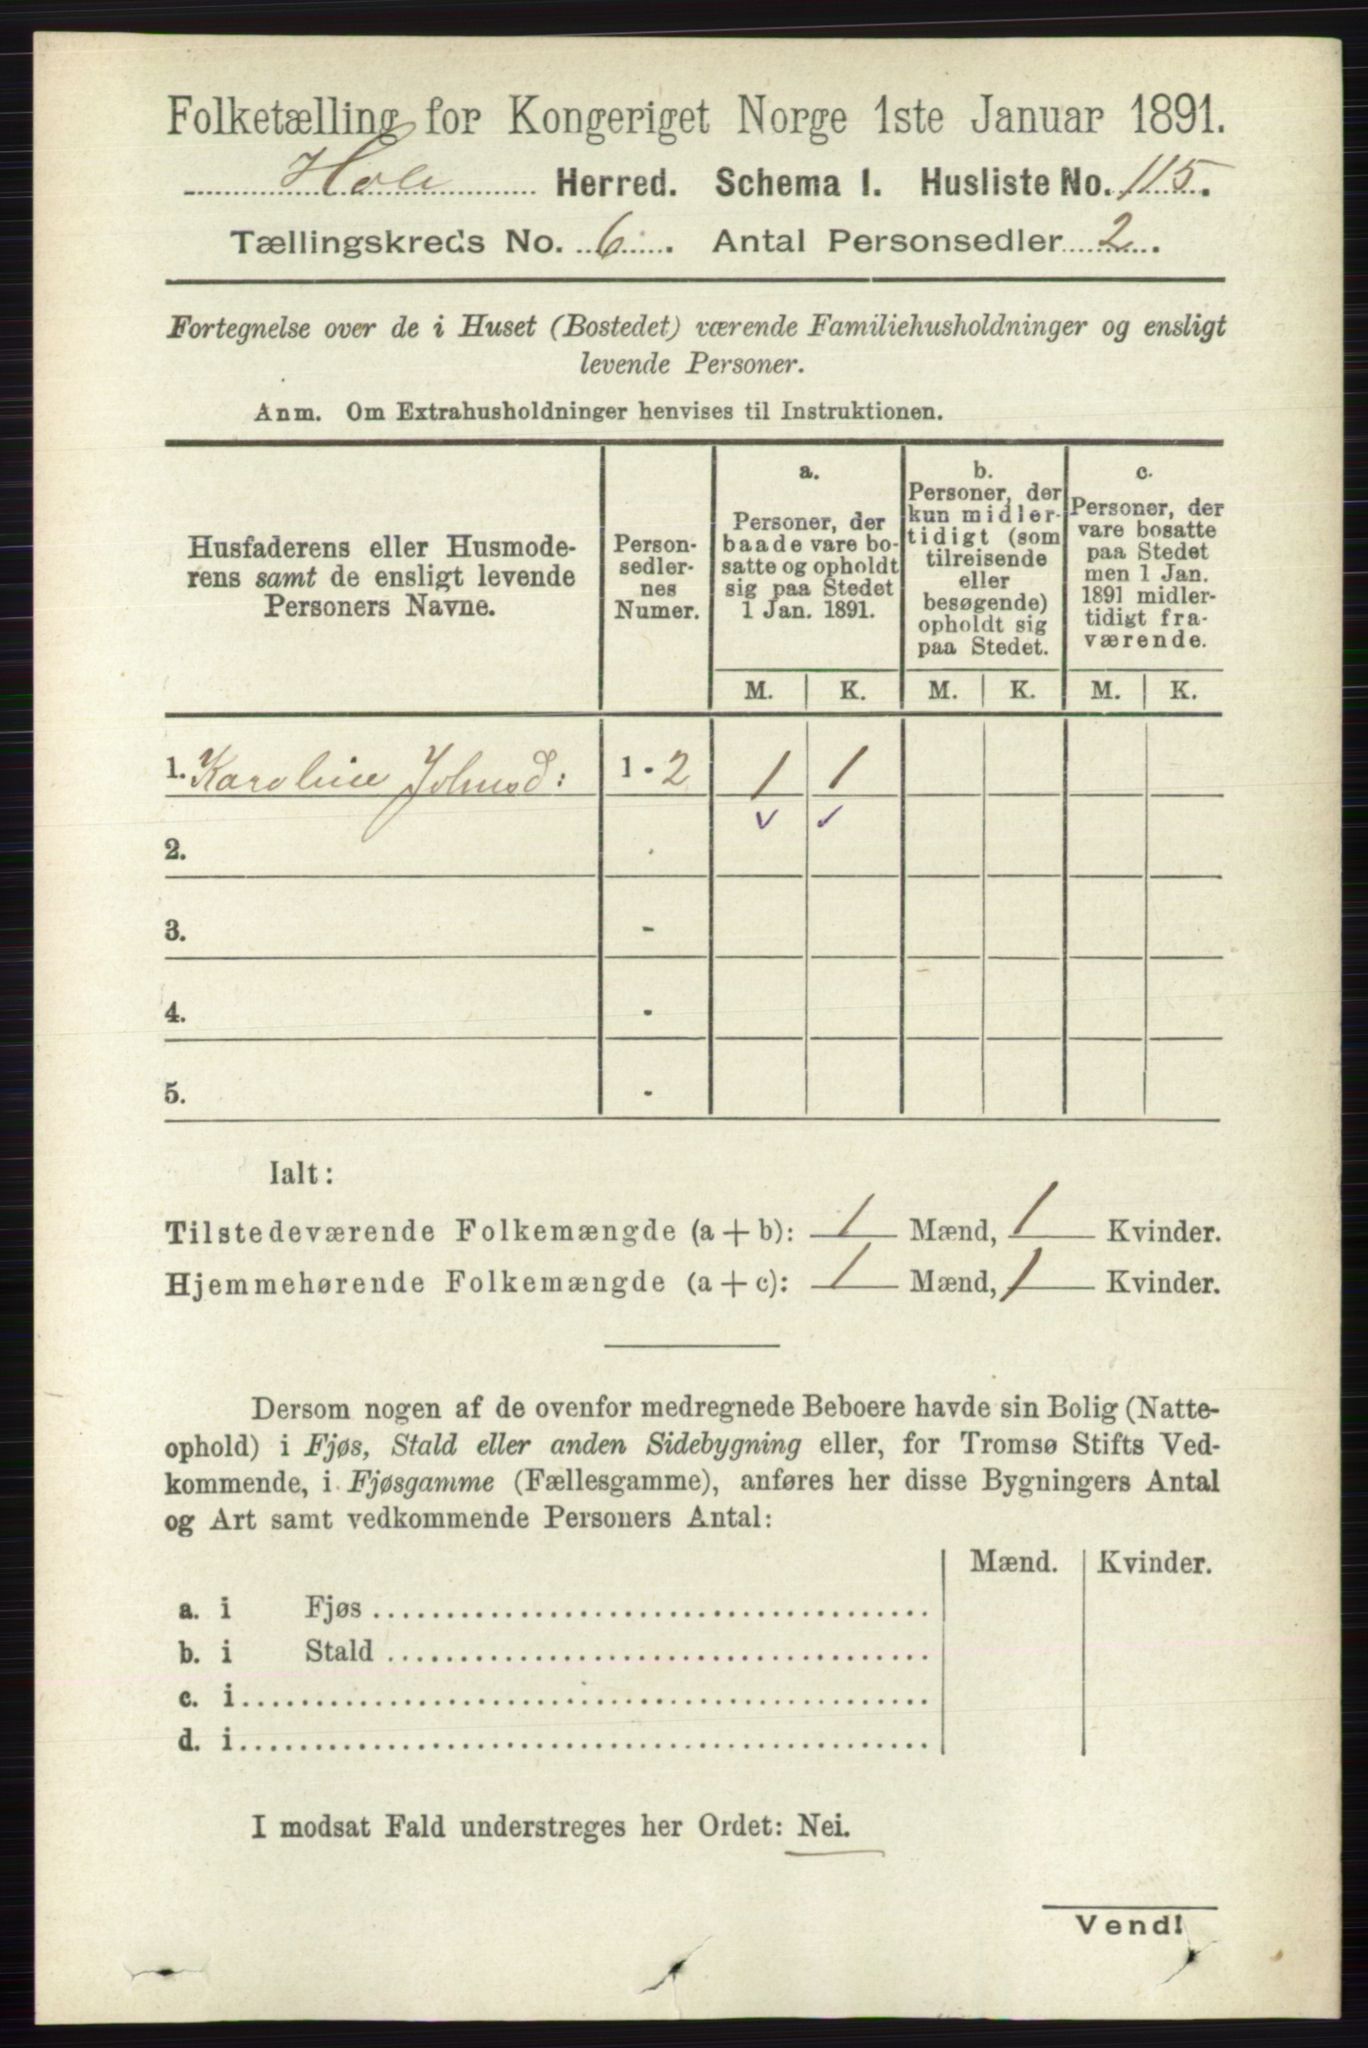 Folketælling for Kongeriget Norge 1ste Januar 1891.
Hole Herred. Schema I. Husliste No. 115.
Tællingskreds No. 6. Antal Personsedler 2.
Fortegnelse over de i Huset (Bostedet) værende Familiehusholdninger og ensligt
levende Personer.
Anm. Om Extrahusholdninger henvises til Instruktionen.
Husfaderens eller Husmode-
rens samt de ensligt levende
Personers Navne.
Person-
sedler-
nes
Numer.
a.
Personer, der
baade vare bo-
satte og opholdt
sig paa Stedet
1 Jan. 1891.
b.
Personer, der
kun midler-
tidigt (som
tilreisende
eller
besøgende)
opholdt sig
paa Stedet.
c.
Personer, der
vare bosatte
paa Stedet
men 1 Jan.
1891 midler-
tidigt fra-
værende.
M. K. M. K. M. K.
1. Karoline Johnsd: 1 - 2 1 1
2.
3. -
4. -
5. -
Ialt:
Tilstedeværende Folkemængde (a + b): 1 Mænd, 1 Kvinder.
Hjemmehørende Folkemængde (a + c): 1 Mænd, 1 Kvinder.
Dersom nogen af de ovenfor medregnede Beboere havde sin Bolig (Natte-
ophold) i Fjøs, Stald eller anden Sidebygning eller, for Tromsø Stifts Ved-
kommende, i Fjøsgamme (Fællesgamme), anføres her disse Bygningers Antal
og Art samt vedkommende Personers Antal:
Mænd. Kvinder.
a. i Fjøs
b. i Stald
c. i
d. i
I modsat Fald understreges her Ordet: Nei.
Vend!